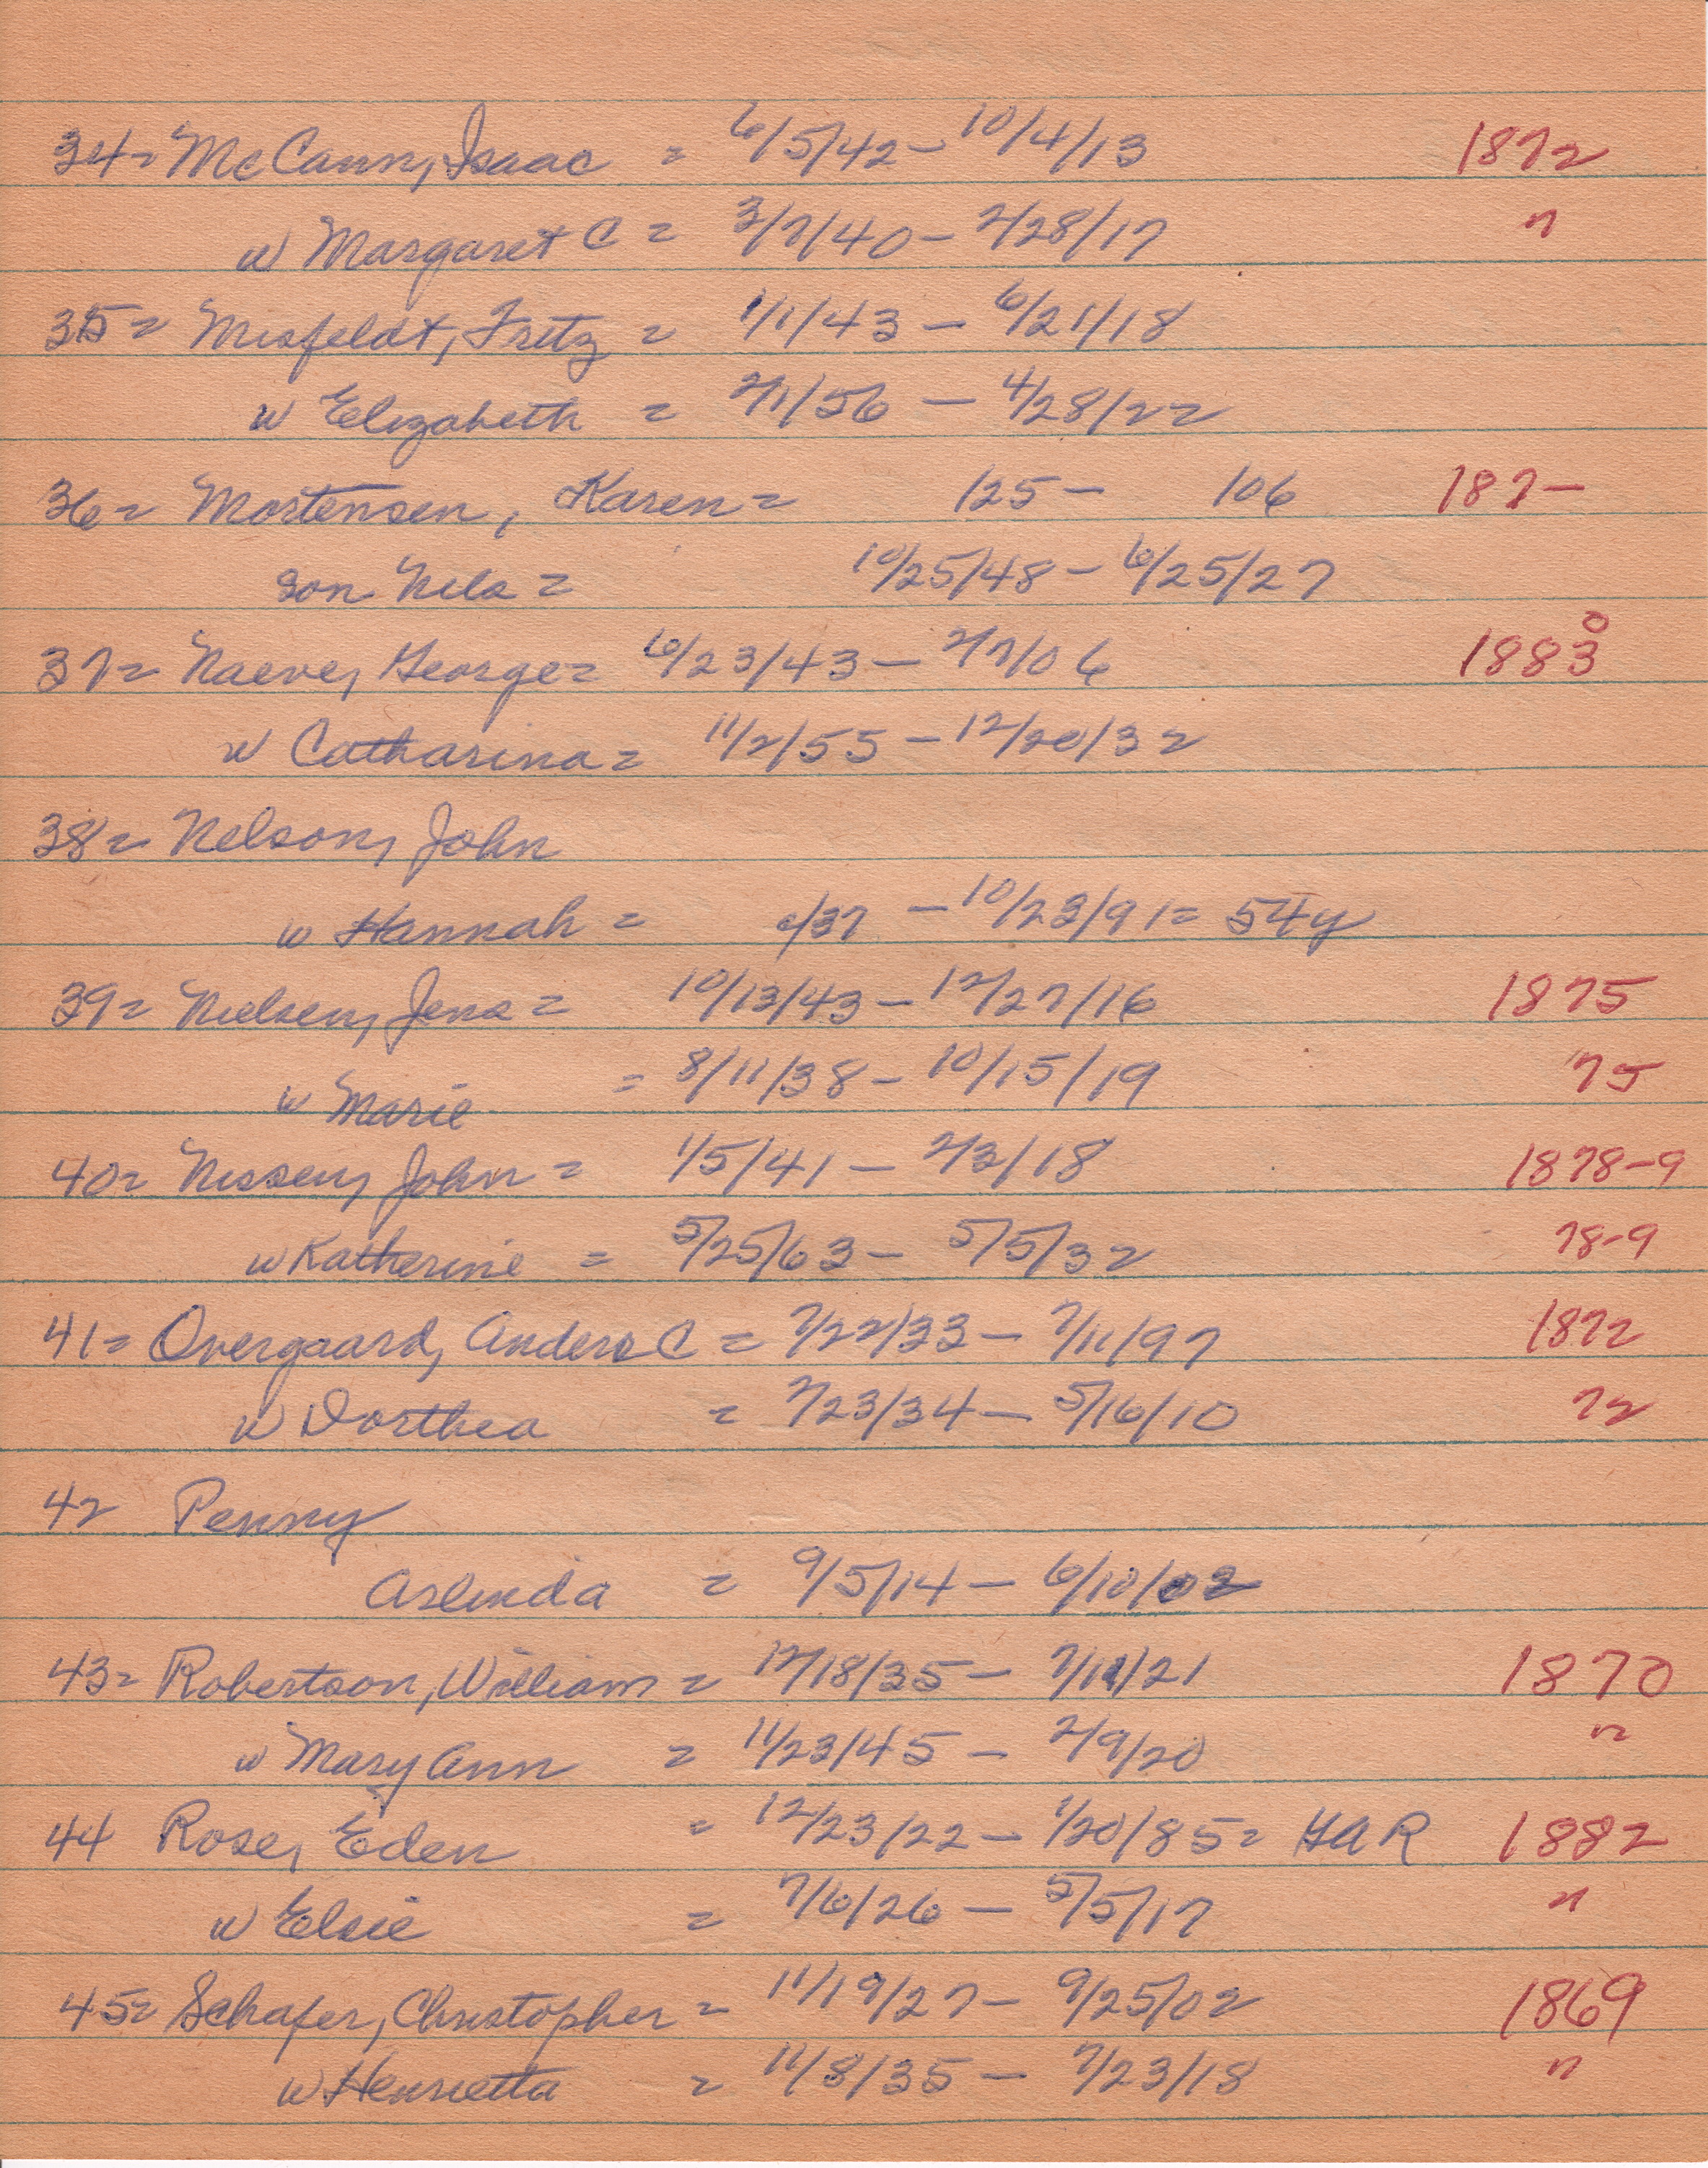 34= McCann, Isaac = 6/5/42 - 10/4/13 1872
w Margaret C = 3/7/40 - 2/28/17 "
35= Misfeldt, Fritz = 1/1/43 - 6/21/18
w Elizabeth = 2/1/56 - 4/28/22
36= Mortensen, Karen = 125 - 106 187-
son Nels = 10/25/48 - 6/25/27
37= Naeve, George = 6/23/43 - 2/7/06 1883 0
w Catharina = 11/2/55 - 12/20/32
38= Nelson, John
w Hannah = c/37 - 10/23/91 = 54y
39= Nielsen, Jens = 10/13/43 - 12/27/16 1875
w Marie = 8/11/38 - 10/15/19 75
40= Nissen, John = 1/5/41 - 2/3/18 1878-9
w Katherine = 5/25/63 - 5/5/32 78-9
41= Overgaard, Anders C = 7/22/33 - 7/11/97 1872
w Dorthea = 7/23/34 - 5/16/10 72
42 Penny
Arlinda = 9/5/14 - 6/10/02
43= Robertson, William = 12/18/35 - 7/11/21 1870
w Mary Ann = 11/23/45 - 2/9/20 "
44 Rose, Eden = 12/23/22 - 1/20/85 = GAR 1882
w Elsie = 7/6/26 - 5/5/17 "
45= Schafer, Christopher = 11/19/27 - 9/25/02 1869
w Henrietta = 11/8/35 - 7/23/18 "